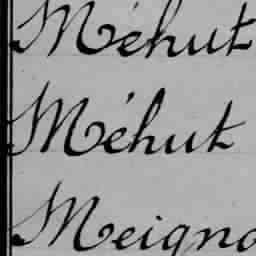 Méhut
Méhut
Meigno